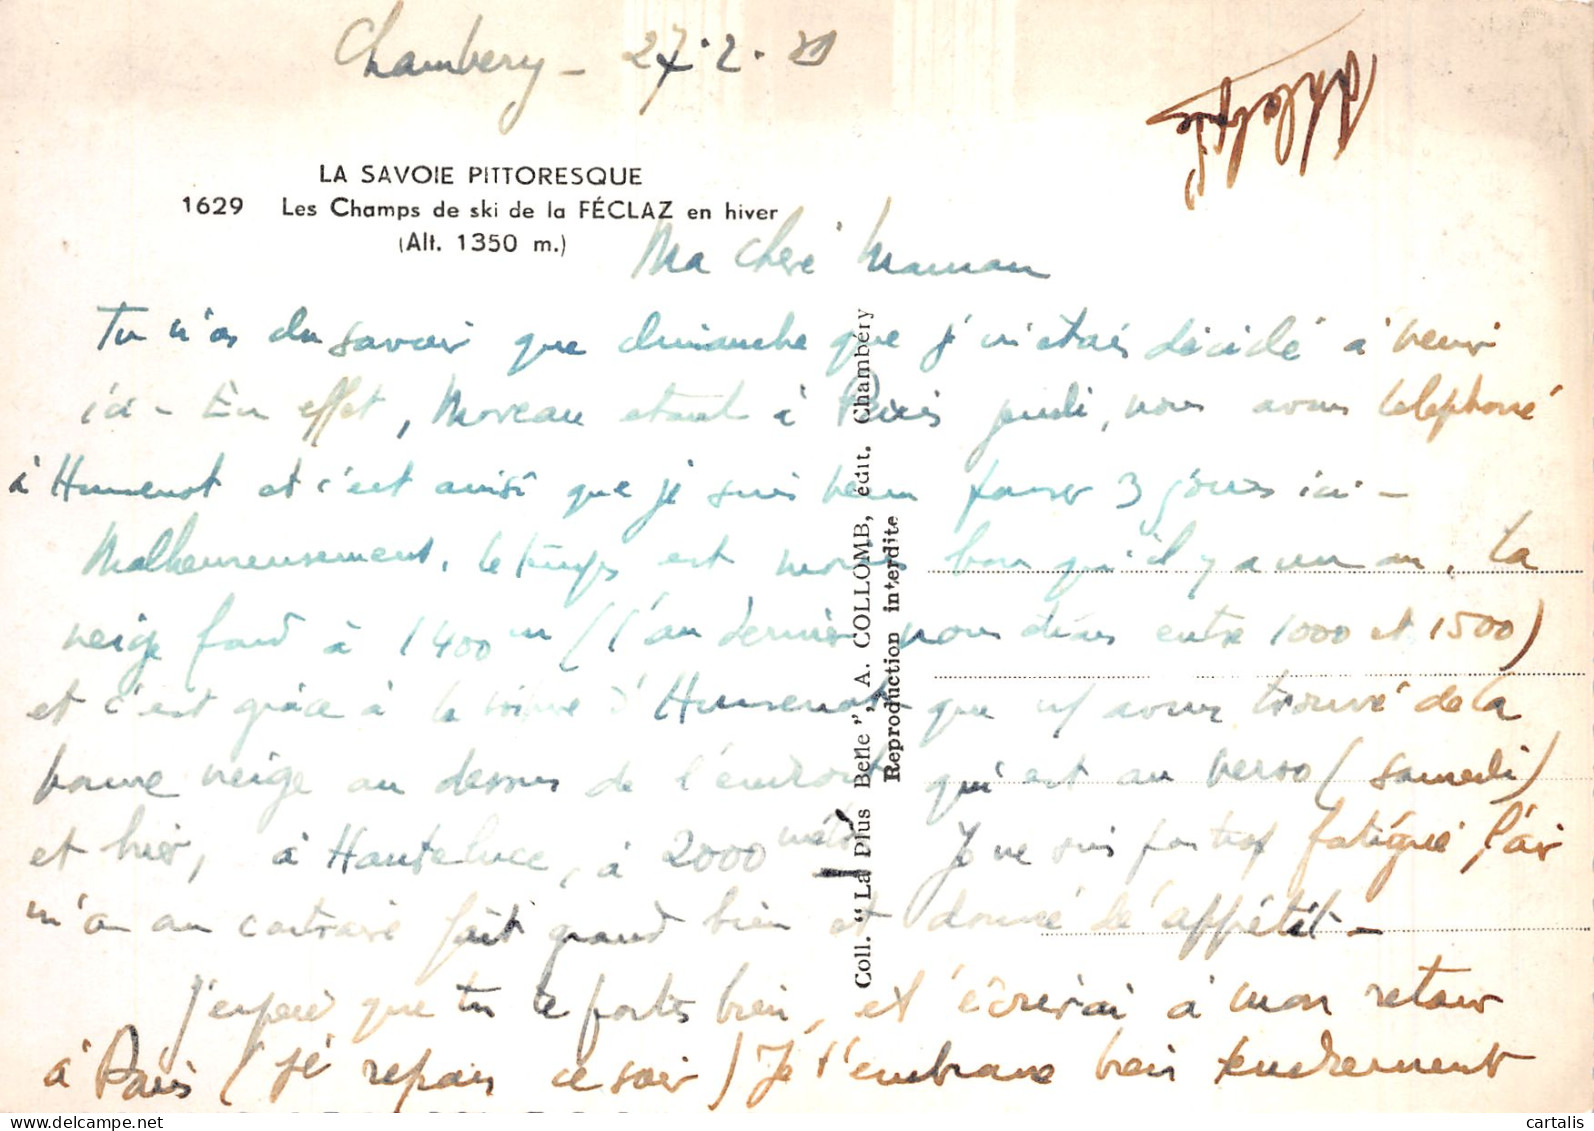 Chambery - 27.2.
LA SAVOIE PITTORESQUE
1629 Les Champs de ski de la FÉCLAZ en hiver
(Alt. 1350 m.)
Ma chère Maman
Tu n'as du savoir que dimanche que je m'étais décidé à venir
ici - En effet, Moreau étant à Paris jeudi, nous avons téléphoné
à Humenot et c'est ainsi que je suis venu passer 3 jours ici -
Malheureusement, le temps est moins bon qu'il y a un an. La
neige fond à 1400 m (l'an dernier nous étions entre 1000 et 1500)
et c'est grâce à la voiture d'Humenot que ns avons trouvé de la
bonne neige au dessus de l'endroit qui est au verso (samedi)
et hier, à Hauteluce, à 2000 mètres. Je ne suis pas trop fatigué, l'air
m'a au contraire fait grand bien et donné de l'appétit -
J'espère que tu te portes bien, et t'écrirai à mon retour
à Paris (je repars ce soir) Je t'embrasse bien tendrement
Coll. "La Plus Belle", A. COLLOMB, édit. Chambéry
Reproduction interdite
cartalis